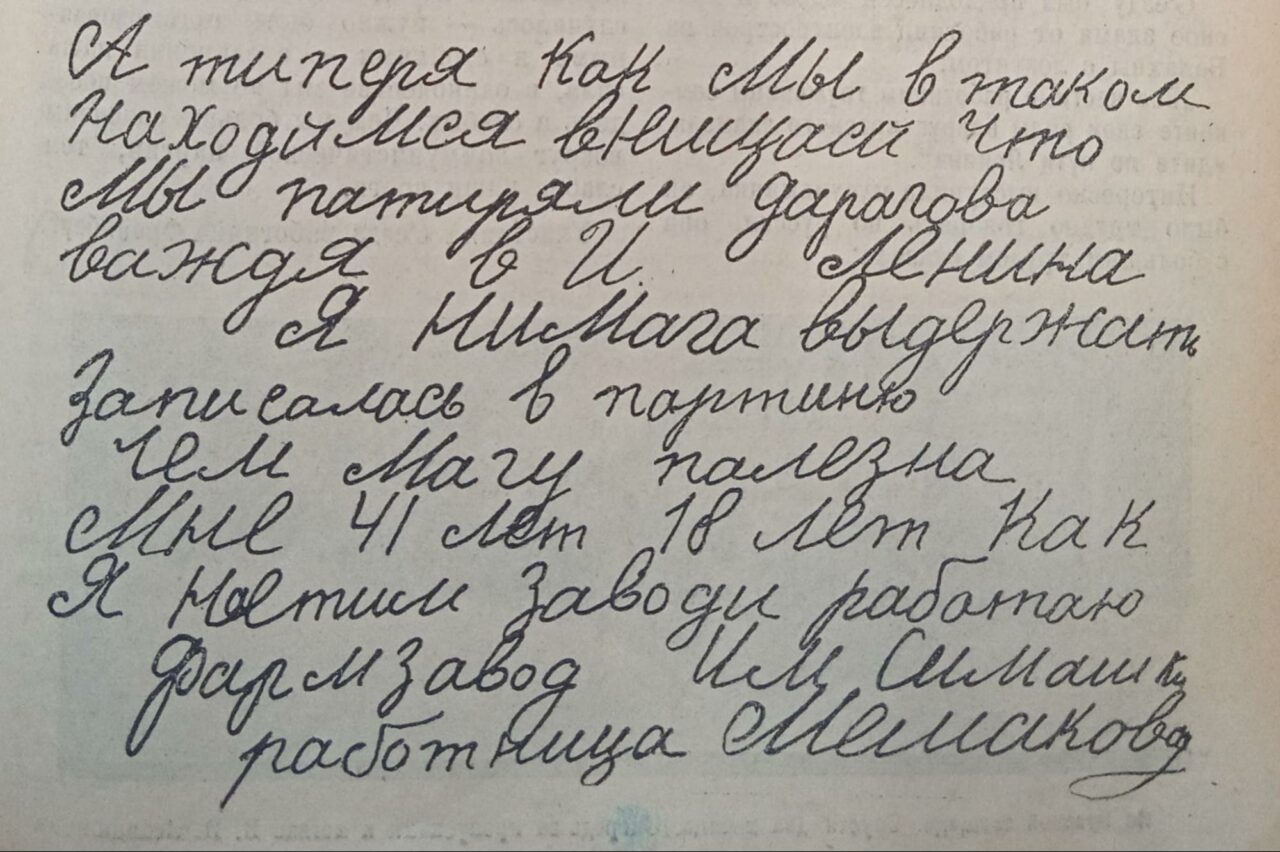 А типеря как мы в таком
находимся внищасй что
мы патиряли дарагова
важдя в И. Ленина
Я нимага выдержать
Записалась в партиню
Чем магу палезна
Мне 41 лет 18 лет как
Я наетим заводи работаю
Фармзавод Им Симашки
работница Мемакова